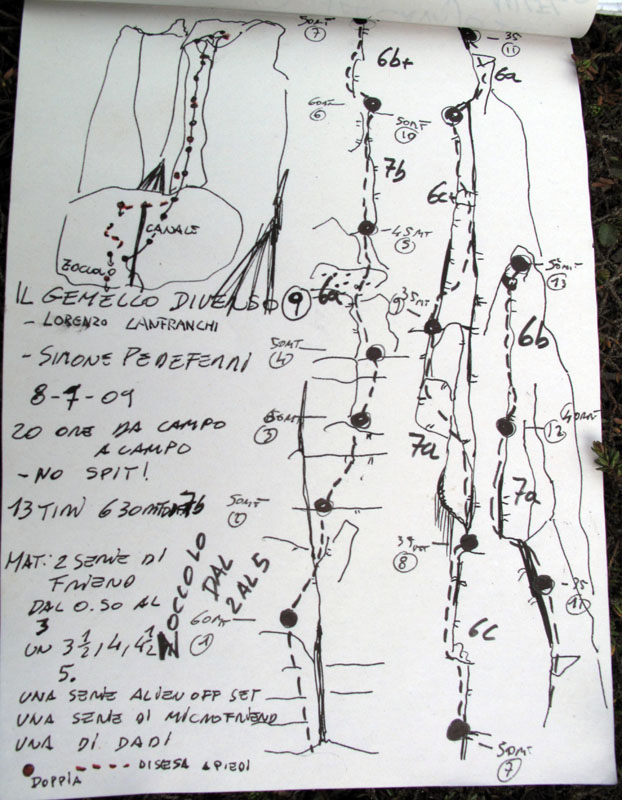 CANALE
ZOCCOLO
IL GEMELLO DIVERSO 9
- LORENZO LANFRANCHI
- SIMONE PEDEFERRI
8-7-09
20 ORE DA CAMPO
A CAMPO
- NO SPIT!
13 TIRI 630MT 7b
MAT: 2 SERIE DI
FRIEND
DAL 0.50 AL
3
UN 3 1/2, 4, 4 1/2
5.
UNA SERIE ALIEN OFF SET
UNA SERIE DI MICROFRIEND
UNA DI DADI
DOPPIA
DISESA A PIEDI
ZOCCOLO
DAL
2 AL 5
50MT
7
6b+
60MT
6
50MT
10
7b
45MT
5
6a
50MT
4
3
50MT
2
60MT
1
35
11
6a
6c+
35MT
9
7a
8
6c
50MT
7
50MT
13
6b
40MT
12
7a
35
11